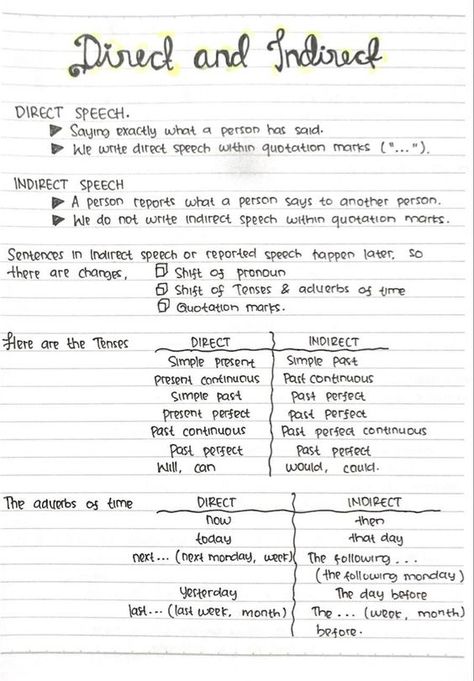 Direct and Indirect
DIRECT SPEECH.
Saying exactly what a person has said.
We write direct speech within quotation marks ("...").
INDIRECT SPEECH
A person reports what a person says to another person.
We do not write indirect speech within quotation marks.
Sentences in Indirect speech or reported speech happen later, so
there are changes, Shift of pronoun
Shift of Tenses & adverbs of time
Quotation marks.
Here are the Tenses DIRECT INDIRECT
Simple present Simple past
Present continuous Past continuous
Simple past Past perfect
Present perfect Past perfect
Past continuous Past perfect continuous
Past perfect Past perfect
Will, can would, could.
The adverbs of time DIRECT INDIRECT
now then
today that day
next... (next monday, week) The following ...
(the following monday)
Yesterday The day before
last... (last week, month) The ... (week, month)
before.